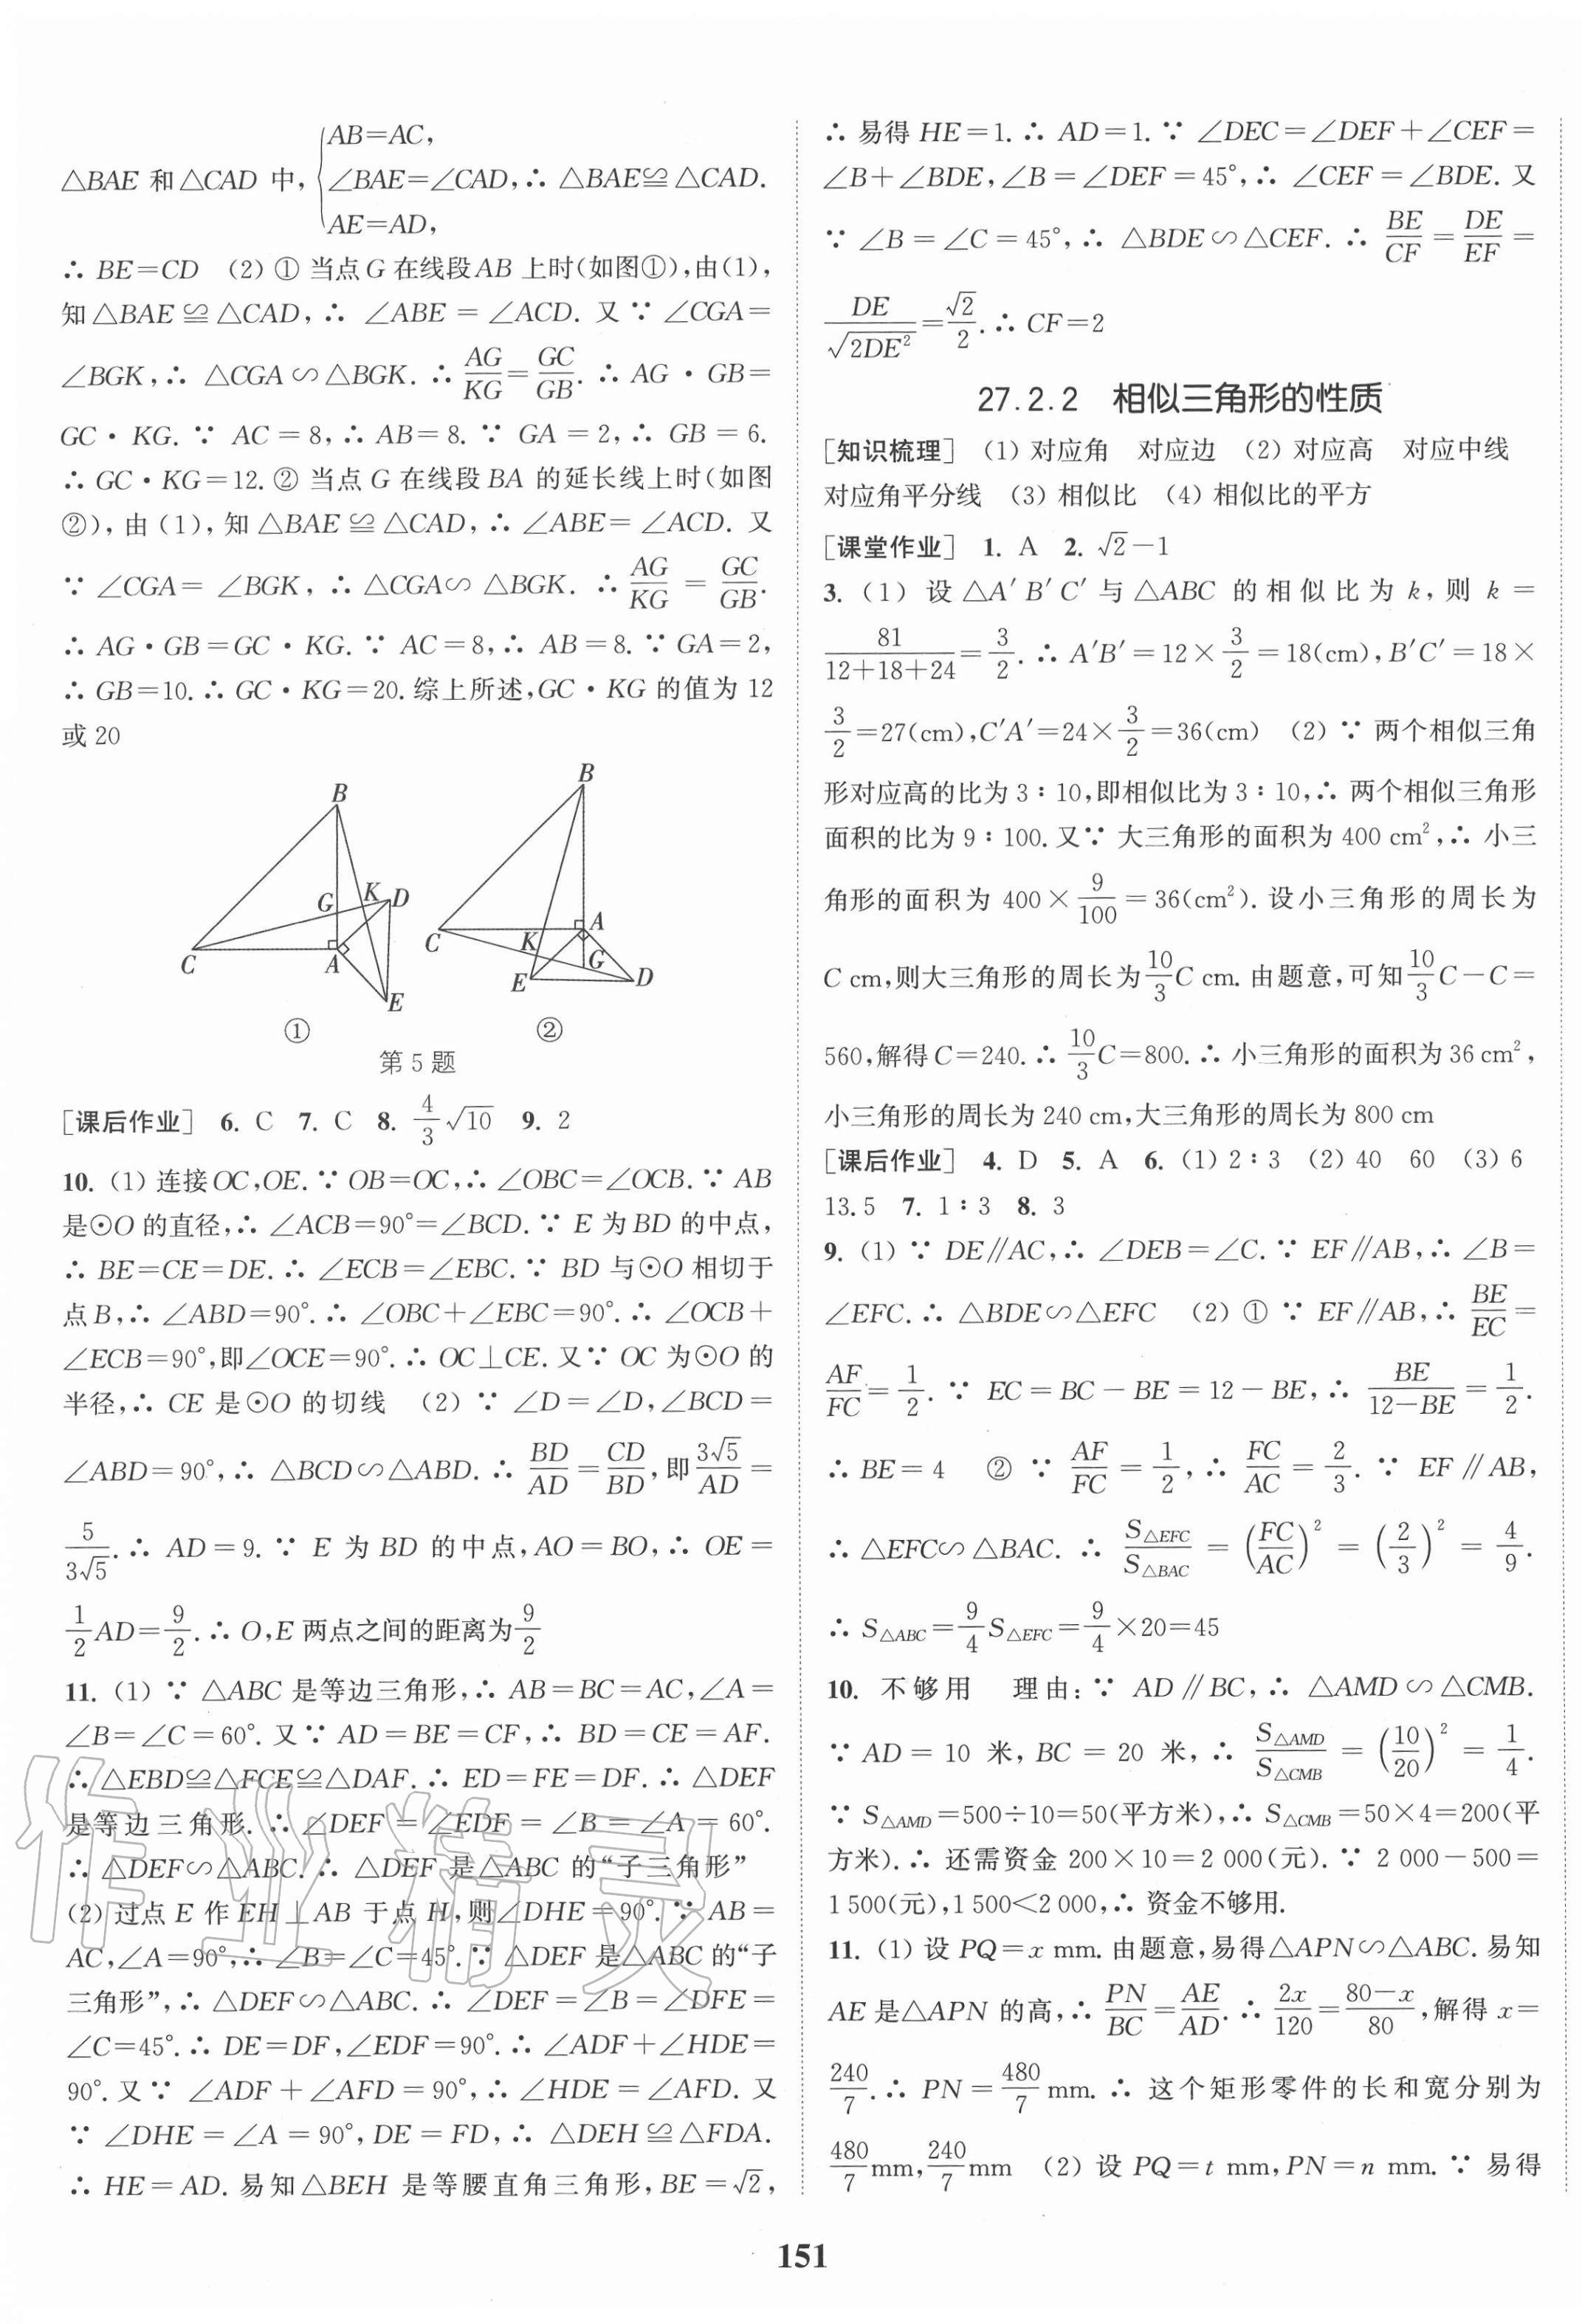 △BAE 和△CAD 中, { AB=AC,
∠BAE=∠CAD, ∴ △BAE≌△CAD.
AE=AD,
∴ BE=CD (2) ① 当点 G 在线段 AB 上时(如图①),由(1),
知△BAE≌△CAD, ∴ ∠ABE=∠ACD. 又∵ ∠CGA=
∠BGK, ∴ △CGA∽△BGK. ∴ AG/KG=GC/GB. ∴ AG·GB=
GC·KG. ∵ AC=8, ∴ AB=8. ∵ GA=2, ∴ GB=6.
∴ GC·KG=12. ② 当点 G 在线段 BA 的延长线上时(如图
②),由(1),知△BAE≌△CAD, ∴ ∠ABE=∠ACD. 又
∵ ∠CGA=∠BGK, ∴ △CGA∽△BGK. ∴ AG/KG=GC/GB.
∴ AG·GB=GC·KG. ∵ AC=8, ∴ AB=8. ∵ GA=2,
∴ GB=10. ∴ GC·KG=20. 综上所述, GC·KG 的值为 12
或 20
B
G K D
C A
E
①
B
C A
K G
E D
②
第 5 题
[课后作业] 6. C 7. C 8. 4/3 √10 9. 2
10. (1) 连接OC,OE. ∵ OB=OC, ∴ ∠OBC=∠OCB. ∵ AB
是⊙O 的直径, ∴ ∠ACB=90°=∠BCD. ∵ E 为BD 的中点,
∴ BE=CE=DE. ∴ ∠ECB=∠EBC. ∵ BD 与⊙O 相切于
点B, ∴ ∠ABD=90°. ∴ ∠OBC+∠EBC=90°. ∴ ∠OCB+
∠ECB=90°,即∠OCE=90°. ∴ OC⊥CE. 又∵ OC 为⊙O 的
半径, ∴ CE 是⊙O 的切线 (2) ∵ ∠D=∠D,∠BCD=
∠ABD=90°, ∴ △BCD∽△ABD. ∴ BD/AD=CD/BD,即3√5/AD=
5/3√5. ∴ AD=9. ∵ E 为 BD 的中点, AO=BO, ∴ OE=
1/2 AD=9/2. ∴ O,E 两点之间的距离为9/2
11. (1) ∵ △ABC 是等边三角形, ∴ AB=BC=AC,∠A=
∠B=∠C=60°. 又∵ AD=BE=CF, ∴ BD=CE=AF.
∴ △EBD≌△FCE≌△DAF. ∴ ED=FE=DF. ∴ △DEF
是等边三角形. ∴ ∠DEF=∠EDF=∠B=∠A=60°.
∴ △DEF∽△ABC. ∴ △DEF 是△ABC 的“子三角形”
(2) 过点 E 作 EH⊥AB 于点 H,则∠DHE=90°. ∵ AB=
AC,∠A=90°, ∴ ∠B=∠C=45°. ∵ △DEF 是△ABC 的“子
三角形”, ∴ △DEF∽△ABC. ∴ ∠DEF=∠B=∠DFE=
∠C=45°. ∴ DE=DF,∠EDF=90°. ∴ ∠ADF+∠HDE=
90°. 又∵ ∠ADF+∠AFD=90°, ∴ ∠HDE=∠AFD. 又
∵ ∠DHE=∠A=90°, DE=FD, ∴ △DEH≌△FDA.
∴ HE=AD. 易知△BEH 是等腰直角三角形, BE=√2,
∴ 易得 HE=1. ∴ AD=1. ∵ ∠DEC=∠DEF+∠CEF=
∠B+∠BDE,∠B=∠DEF=45°, ∴ ∠CEF=∠BDE. 又
∵ ∠B=∠C=45°, ∴ △BDE∽△CEF. ∴ BE/CF=DE/EF=
DE/√2DE²=√2/2. ∴ CF=2
27.2.2 相似三角形的性质
[知识梳理] (1) 对应角 对应边 (2) 对应高 对应中线
对应角平分线 (3) 相似比 (4) 相似比的平方
[课堂作业] 1. A 2. √2-1
3. (1) 设△A′B′C′与△ABC 的相似比为 k,则 k=
81/12+18+24=3/2. ∴ A′B′=12×3/2=18(cm), B′C′=18×
3/2=27(cm), C′A′=24×3/2=36(cm) (2) ∵ 两个相似三角
形对应高的比为 3∶10,即相似比为 3∶10, ∴ 两个相似三角形
面积的比为 9∶100. 又∵ 大三角形的面积为 400 cm², ∴ 小三
角形的面积为 400×9/100=36(cm²). 设小三角形的周长为
C cm,则大三角形的周长为10/3 C cm. 由题意,可知10/3 C-C=
560,解得 C=240. ∴ 10/3 C=800. ∴ 小三角形的面积为 36 cm²,
小三角形的周长为 240 cm,大三角形的周长为 800 cm
[课后作业] 4. D 5. A 6. (1) 2∶3 (2) 40 60 (3) 6
13.5 7. 1∶3 8. 3
9. (1) ∵ DE∥AC, ∴ ∠DEB=∠C. ∵ EF∥AB, ∴ ∠B=
∠EFC. ∴ △BDE∽△EFC (2) ① ∵ EF∥AB, ∴ BE/EC=
AF/FC=1/2. ∵ EC=BC-BE=12-BE, ∴ BE/12-BE=1/2.
∴ BE=4 ② ∵ AF/FC=1/2, ∴ FC/AC=2/3. ∵ EF∥AB,
∴ △EFC∽△BAC. ∴ S△EFC/S△BAC=(FC/AC)²=(2/3)²=4/9.
∴ S△ABC=9/4 S△EFC=9/4×20=45
10. 不够用 理由: ∵ AD∥BC, ∴ △AMD∽△CMB.
∵ AD=10 米, BC=20 米, ∴ S△AMD/S△CMB=(10/20)²=1/4.
∵ S△AMD=500÷10=50(平方米), ∴ S△CMB=50×4=200(平
方米). ∴ 还需资金 200×10=2 000(元). ∵ 2 000-500=
1 500(元), 1 500<2 000, ∴ 资金不够用.
11. (1) 设 PQ=x mm. 由题意,易得△APN∽△ABC. 易知
AE 是△APN 的高, ∴ PN/BC=AE/AD. ∴ 2x/120=80-x/80,解得 x=
240/7. ∴ PN=480/7 mm. ∴ 这个矩形零件的长和宽分别为
480/7 mm, 240/7 mm (2) 设 PQ=t mm, PN=n mm. ∵ 易得
151
作业精灵